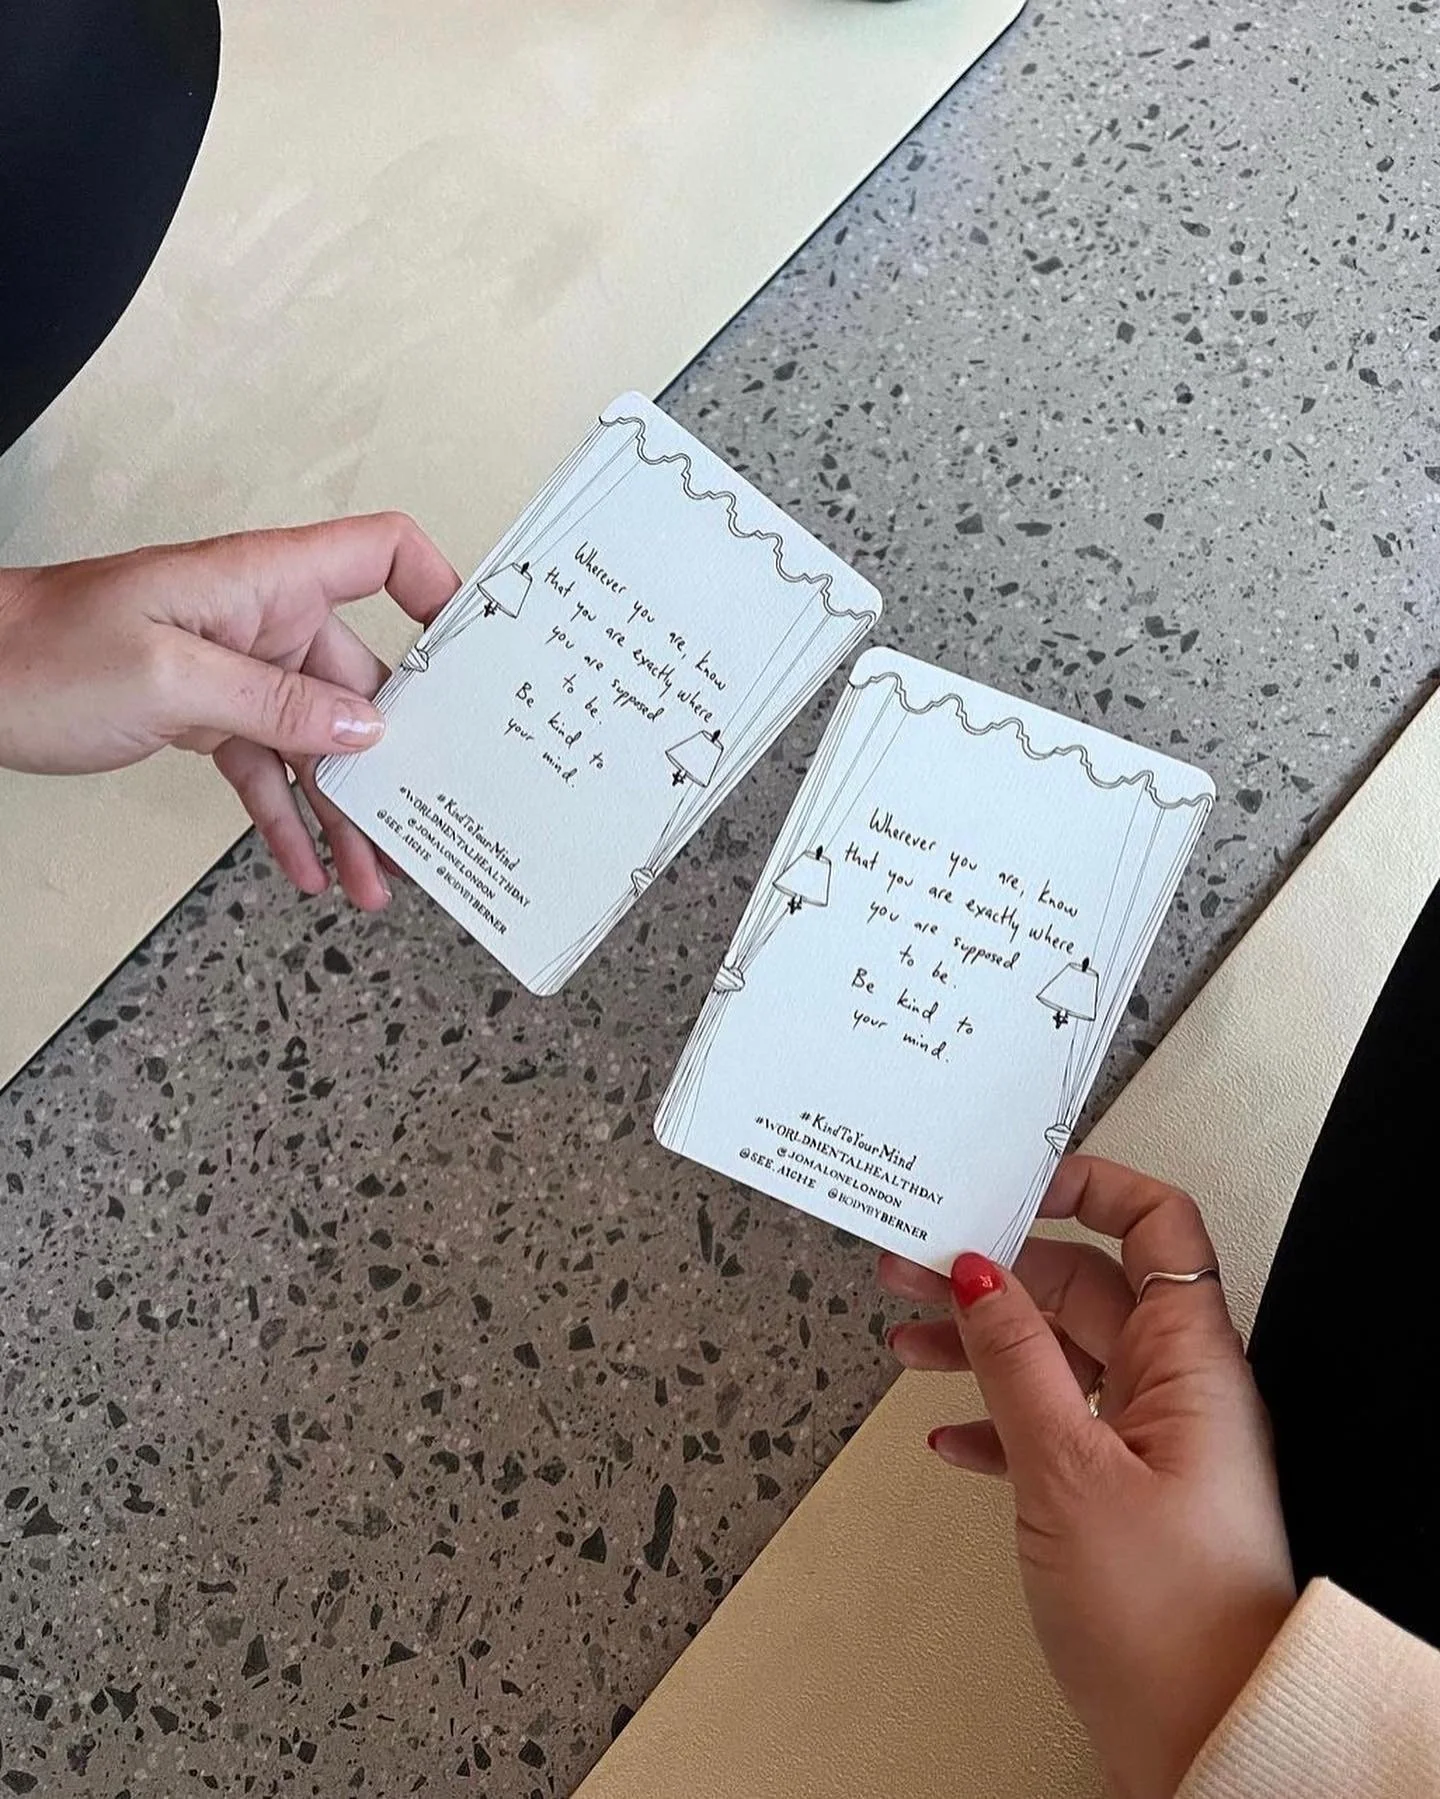 Wherever you are, know
that you are exactly where
you are supposed
to be.
Be kind to
your mind.
#KindToYourMind
#WORLDMENTALHEALTHDAY
@JOMALONELONDON
@SEE.AICHE @BODYBYBERNER
Wherever you are, know
that you are exactly where
you are supposed
to be.
Be kind to
your mind.
#KindToYourMind
#WORLDMENTALHEALTHDAY
@JOMALONELONDON
@SEE.AICHE @BODYBYBERNER